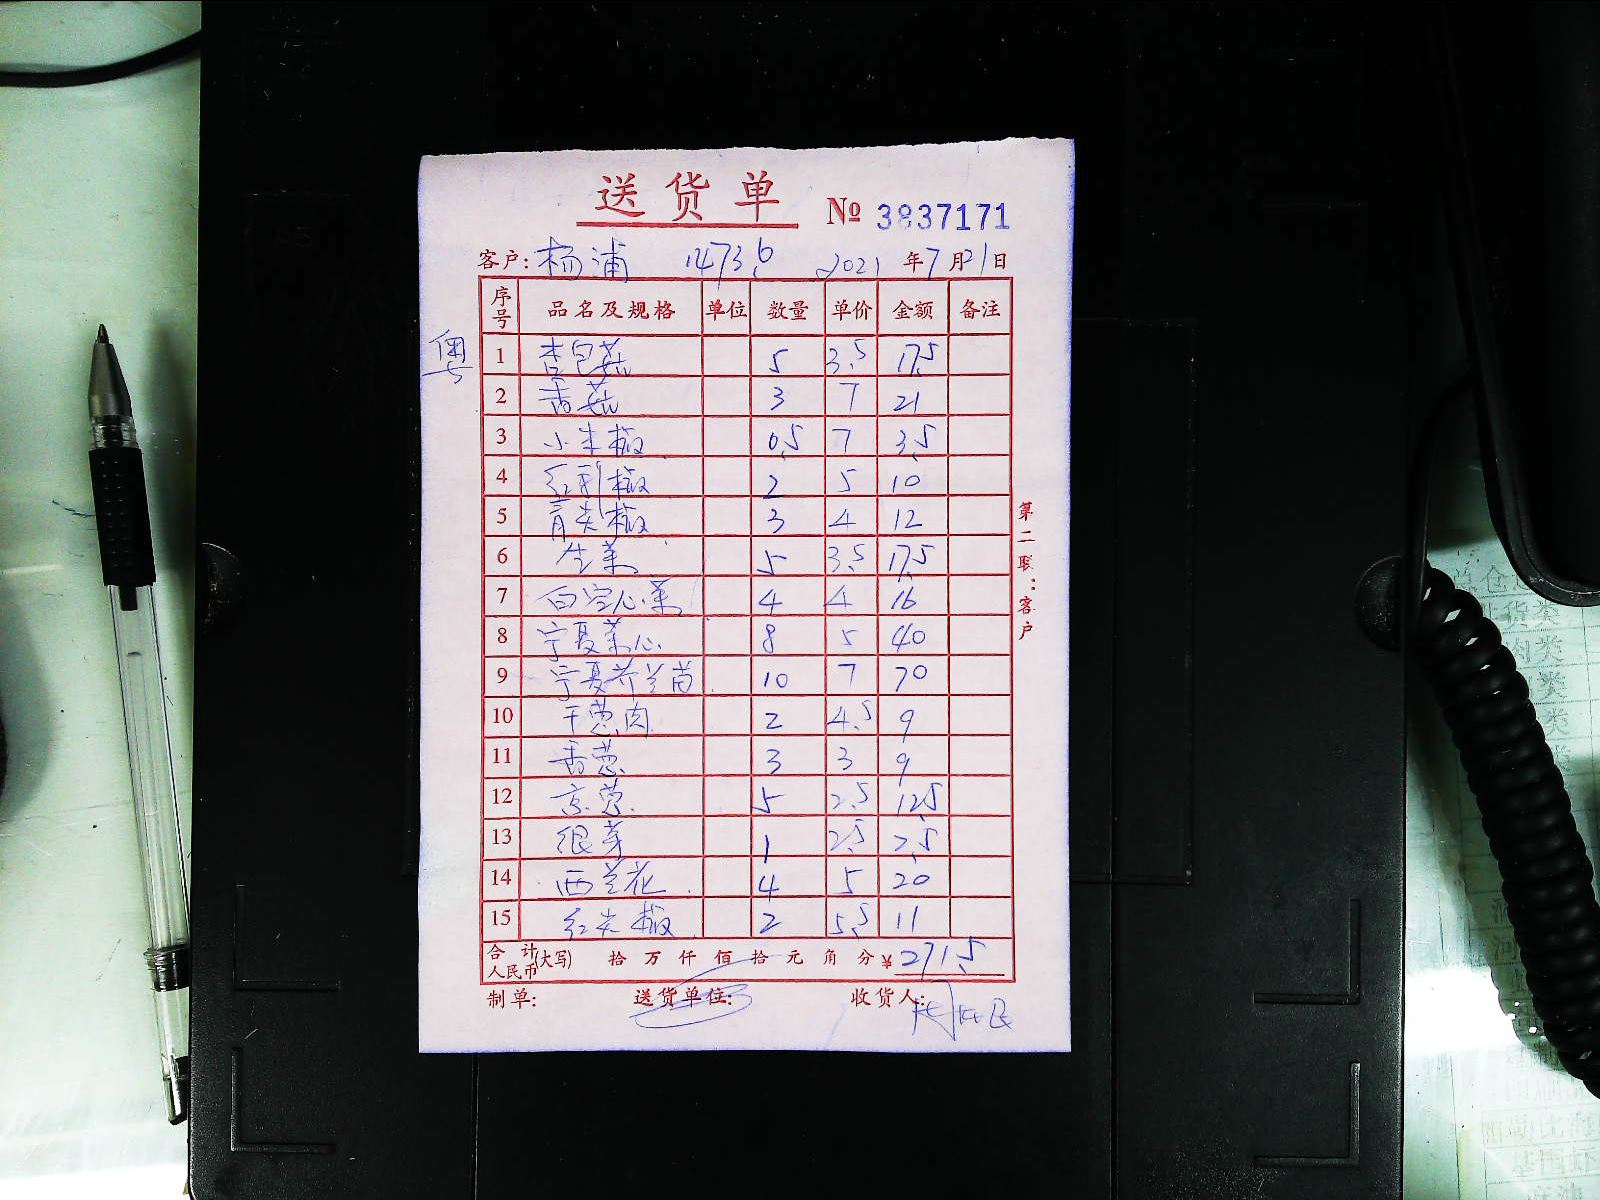 送货单 № 3837171
客户: 杨浦 14736 2021 年 7 月 21 日
粤
序号 品名及规格 单位 数量 单价 金额 备注
1 杏包菇 5 3.5 17.5
2 香菇 3 7 21
3 小米椒 0.5 7 3.5
4 红利椒 2 5 10
5 青尖椒 3 4 12
6 生菜 5 3.5 17.5
7 白空心菜 4 4 16
8 宁夏菜心 8 5 40
9 宁夏芥兰苗 10 7 70
10 干葱肉 2 4.5 9
11 香葱 3 3 9
12 京葱 5 2.5 12.5
13 银芽 1 2.5 2.5
14 西兰花 4 5 20
15 红尖椒 2 5.5 11
合计人民币(大写) 拾 万 仟 佰 拾 元 角 分 ¥ 271.5
制单: 送货单位: 收货人:
第二联:客户